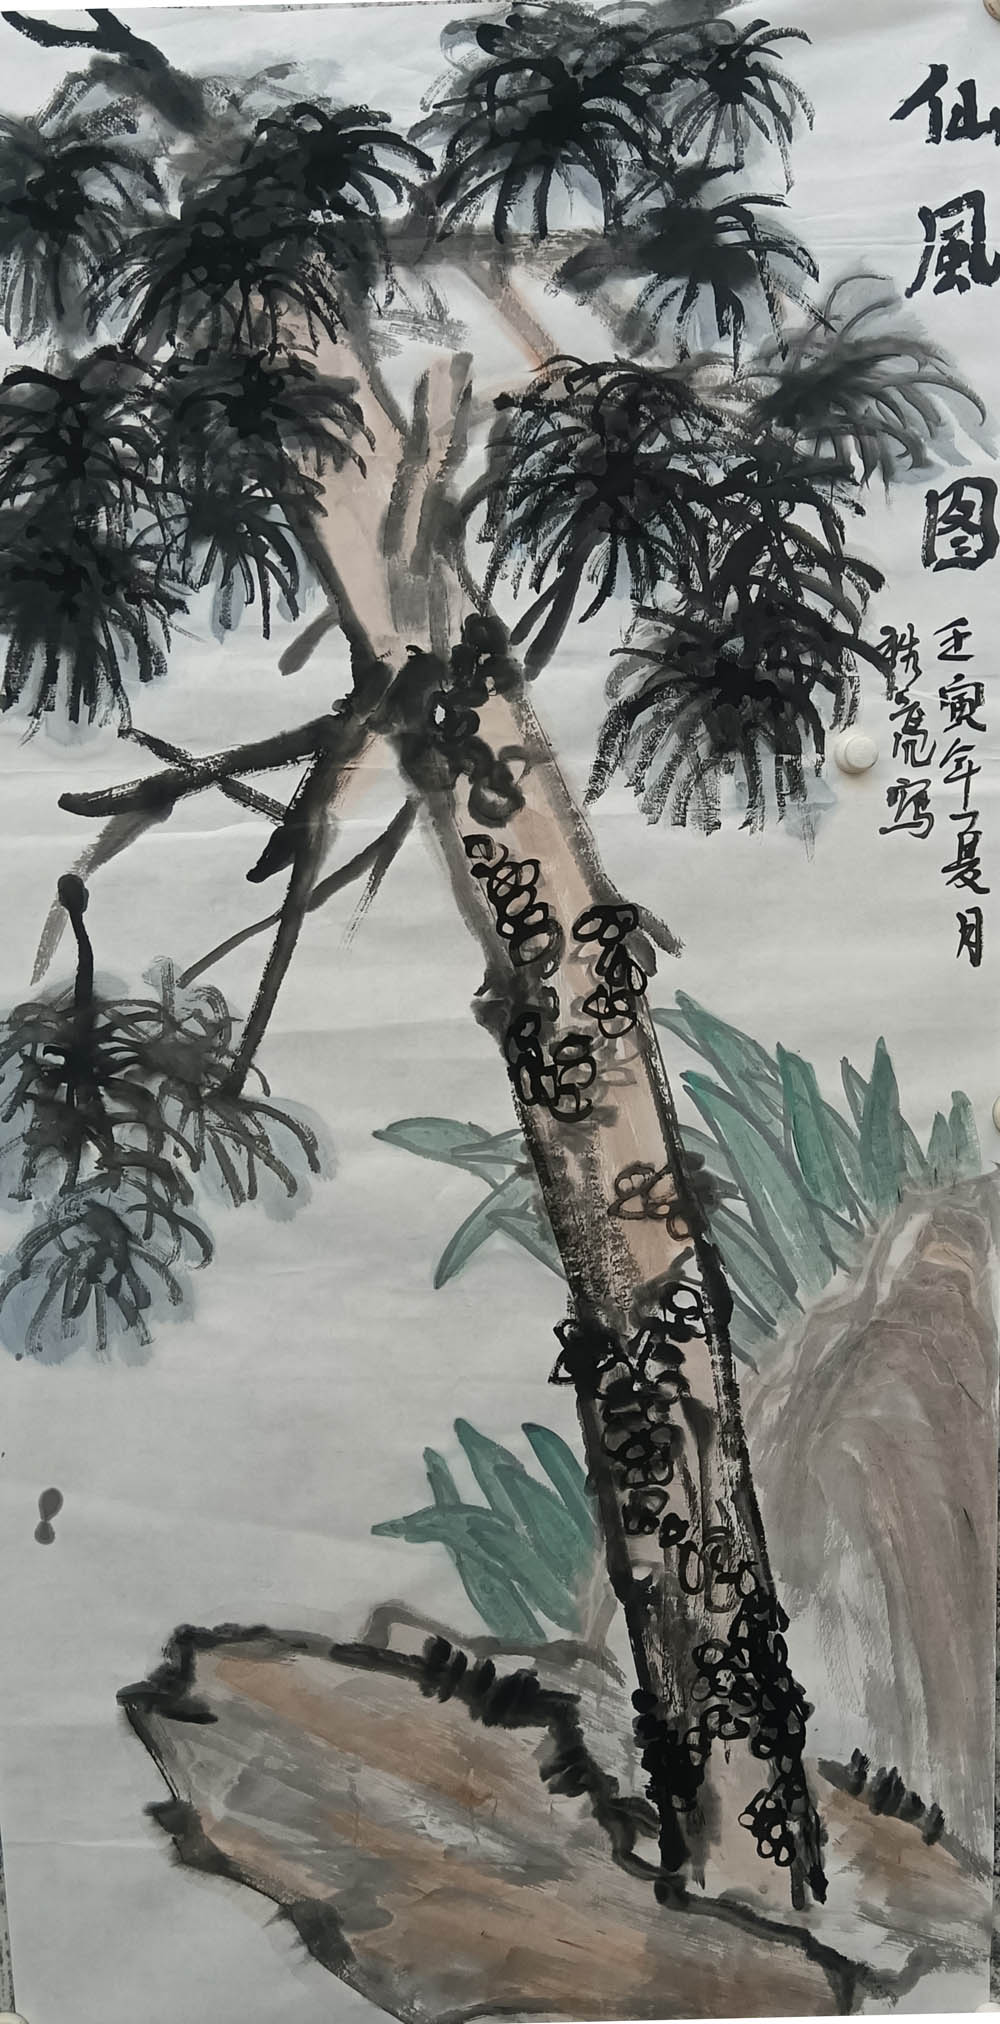 仙風图
壬寅年夏月
浩亮寫